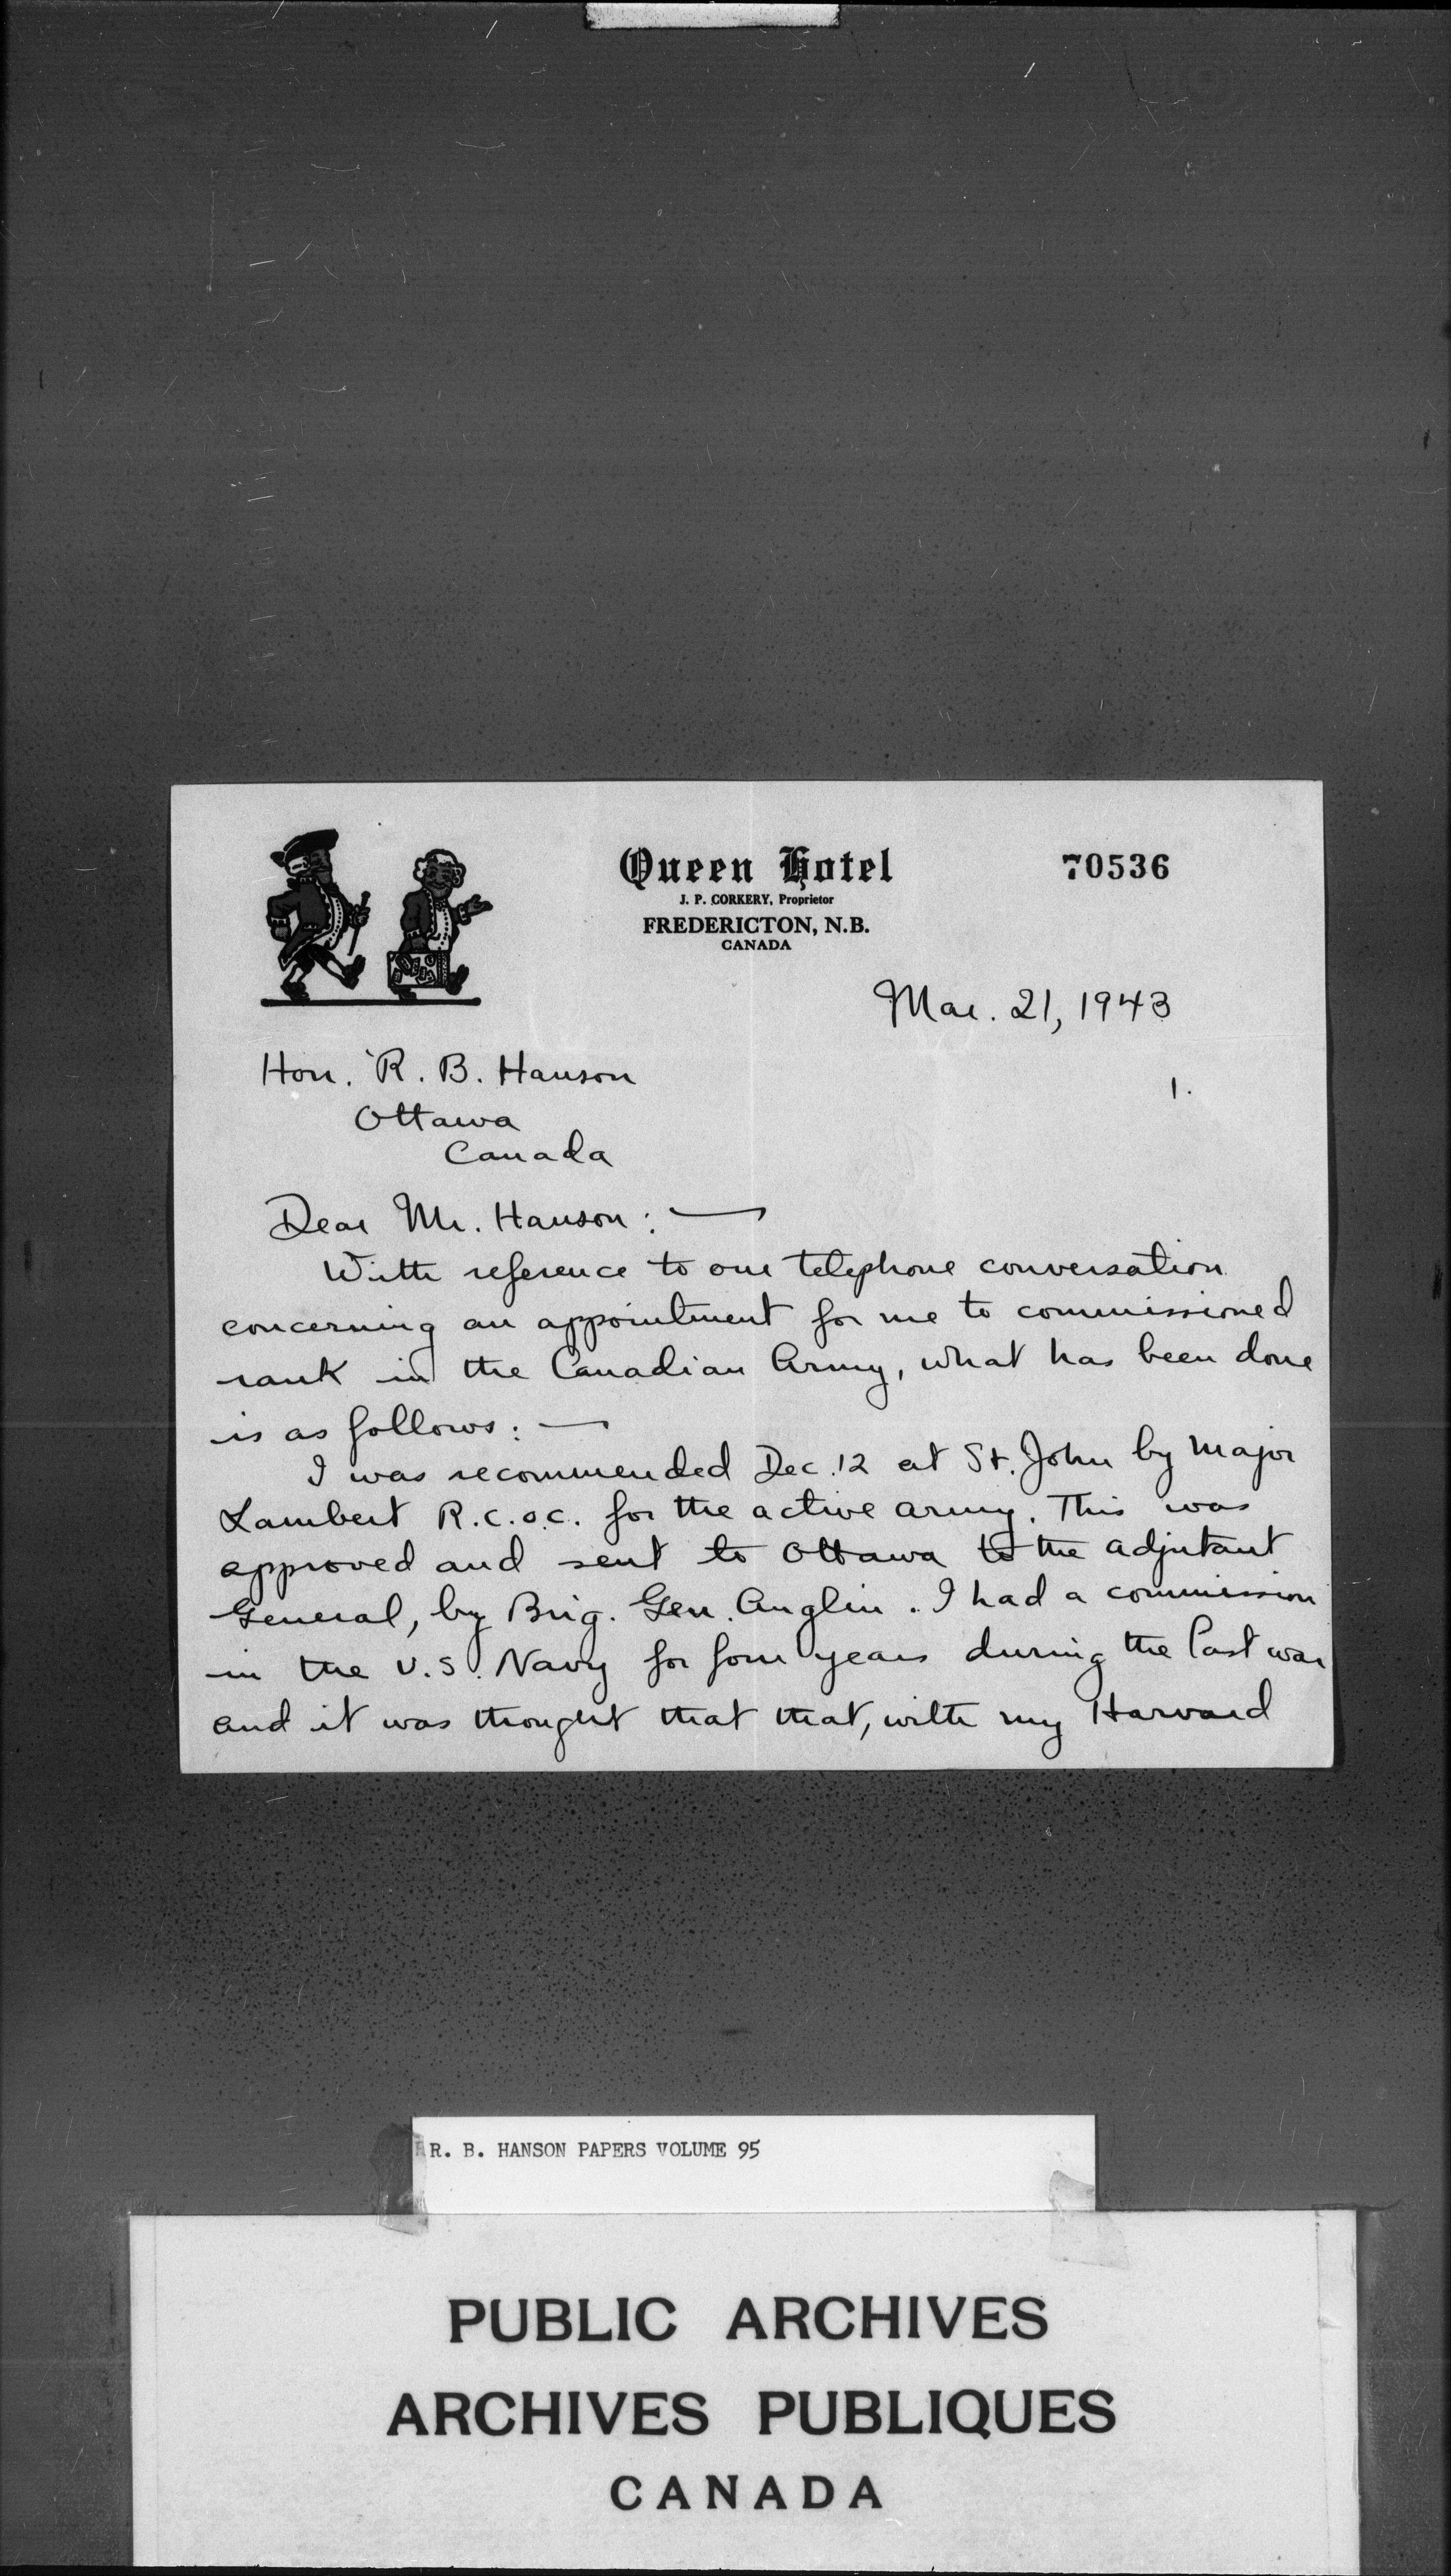 Queen Hotel
70536
J. P. CORKERY, Proprietor
FREDERICTON, N.B.
CANADA
Mar. 21, 1943
Hon. R. B. Hanson
1.
Ottawa
Canada
Dear Mr. Hanson: —
With reference to our telephone conversation
concerning an appointment for me to commissioned
rank in the Canadian Army, what has been done
is as follows: —
I was recommended Dec. 12 at St. John by Major
Lambert R.C.O.C. for the active army. This was
approved and sent to Ottawa to the adjutant
General, by Brig. Gen. Anglin. I had a commission
in the U.S. Navy for four years during the last war
and it was thought that that, with my Harvard
R. B. HANSON PAPERS VOLUME 95
PUBLIC ARCHIVES
ARCHIVES PUBLIQUES
CANADA